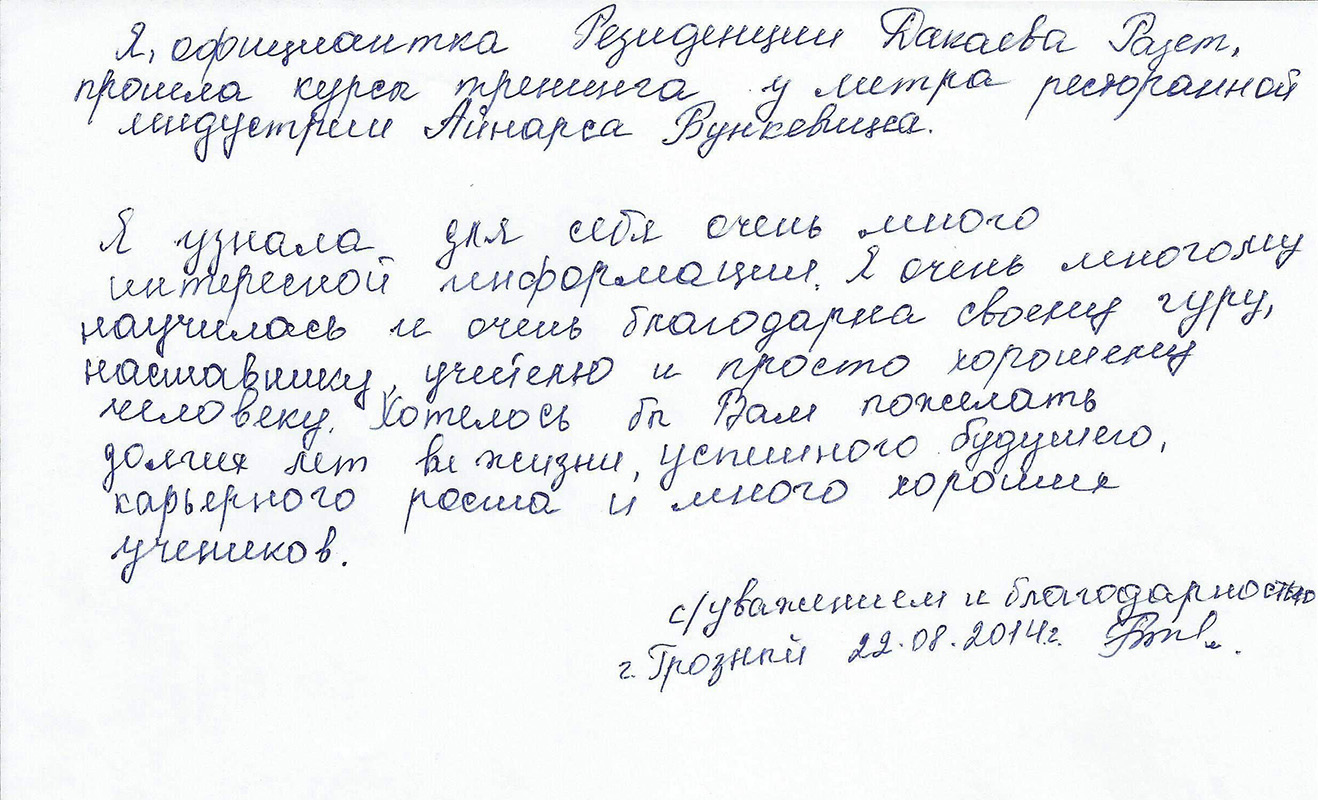 Я, официантка Резиденции Дакаева Разет,
прошла курсы тренинга у метра ресторанной
индустрии Айнарса Вункевища.
Я узнала для себя очень много
интересной информации. Я очень многому
научилась и очень благодарна своему гуру,
наставнику, учителю и просто хорошему
человеку. Хотелось бы Вам пожелать
долгих лет жизни, успешного будущего,
карьерного роста и много хороших
учеников.
с/уважением и благодарностью
г. Грозный 22.08.2014г.